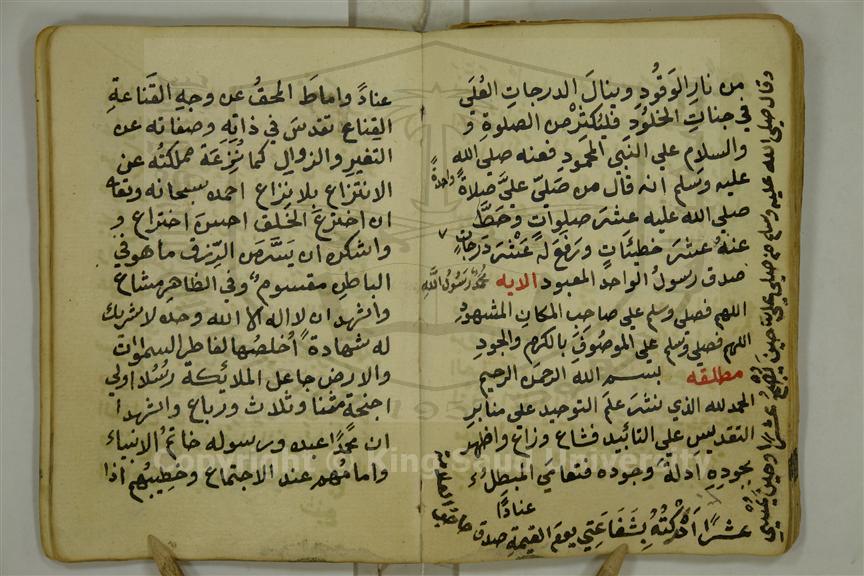 من نار الوقود وينال الدرجات العلي
في جنات الخلود فليكثر من الصلوة و
والسلام علي النبي المحمود فعنه صلي الله
عليه وسلم انه قال من صلي علي صلاة واحدة
صلي الله عليه عشر صلوات وحط
عنه عشر خطئات ورفع له عشر درجات
صدق رسول الواحد المعبود الايه محمد رسول الله
اللهم فصلي وسلم علي صاحب المكان المشهود
اللهم فصلي وسلم علي الموصوف بالكرم والجود
مطلقه بسم الله الرحمن الرحيم
الحمد لله الذي نشر علم التوحيد علي منابر
التقديس علي التائيد فشاع وزاع واظهر
بجوده ادلة وجوده فتعامي المبطلوء
عنادا
وقال صلي الله عليه وسلم من صلي علي حين يصبح عشرا وحين يمسي
عشرا ادركته بشفاعتي يوم القيمة صدق
عنادا واماط المحق عن وجه القناعة
القناع تقدس في ذاته وصفاته عن
التغير والزوال كما نزعة مملكته عن
الانتزاع بلا نزاع احمده سبحانه وتعا
ان اخترع الخلق احسن اختراع و
واشكره ان يسر من الرزق ما هو في
الباطن مقسوم وفي الظاهر مشاع
واشهد ان لا اله الا الله وحده لا شريك
له شهادة اخلصها لفاطر السموات
والارض جاعل الملائكة رسلا اولي
اجنحة مثنا وثلاث ورباع واشهد ا
ان محمدا عبده ورسوله خاتم الانبياء
وامامهم عند الاجتماع وخطيبهم اذا
Copyright © King Saud University